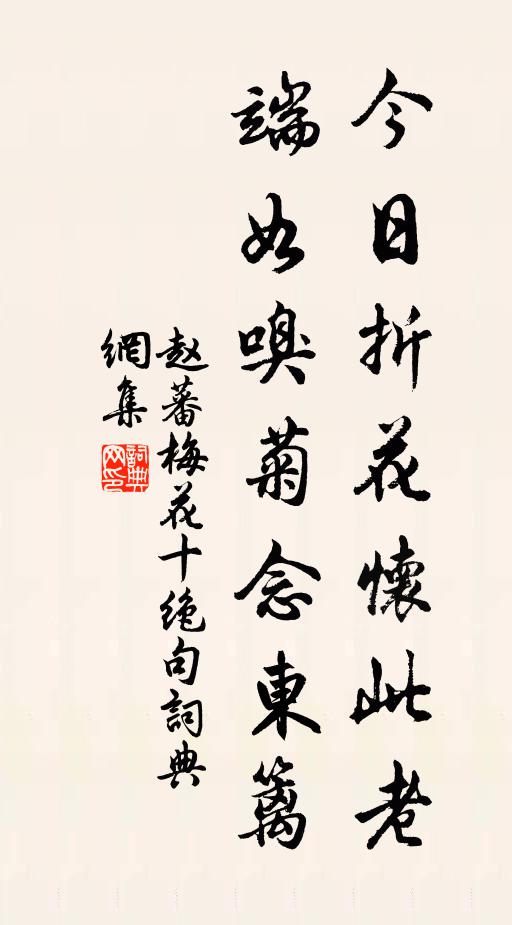 今日折花懷此老
端如嗅菊念東籬
赵蕃梅花十绝句詞典
網集
詞典
网印